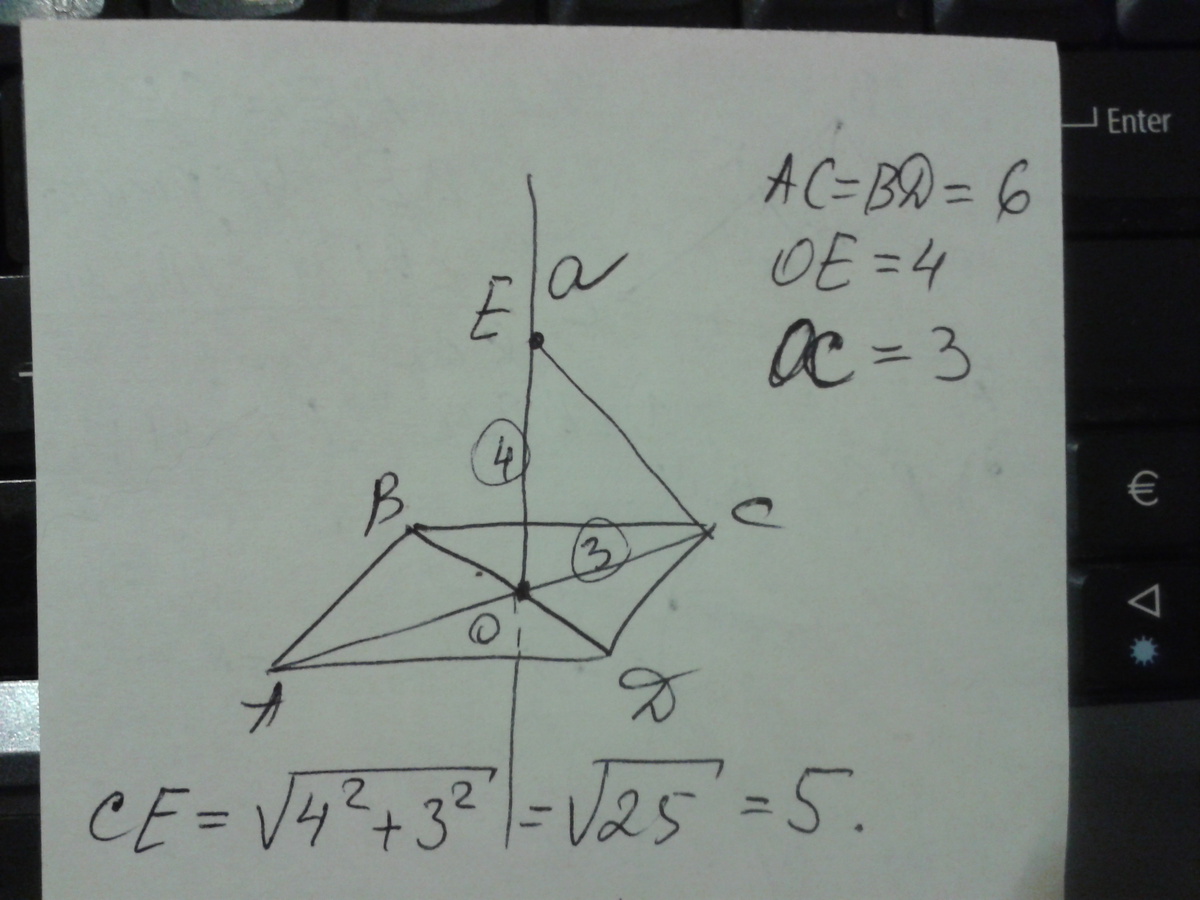 Enter
AC=BD=6
OE=4
OC=3
E a
4
B C
3
€
O
A D
CE=√4²+3² =√25 =5.